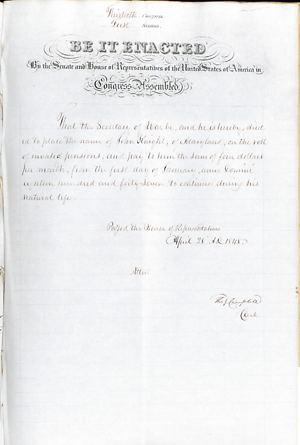 Thirtieth Congress
First Session
BE IT ENACTED
By the Senate and House of Representatives of the United States of America in
Congress Assembled
That the Secretary of War be, and he is hereby, direct
ed to place the name of John, of Maryland, on the roll
of invalid pensions, and pay to him the sum of four dollars
per month, from the first day of January, anno Domini
eighteen hundred and forty seven to continue during his
natural life.
Passed the House of Representatives
April 28 AD 1848.
Attest
Th J Campbell
Clerk